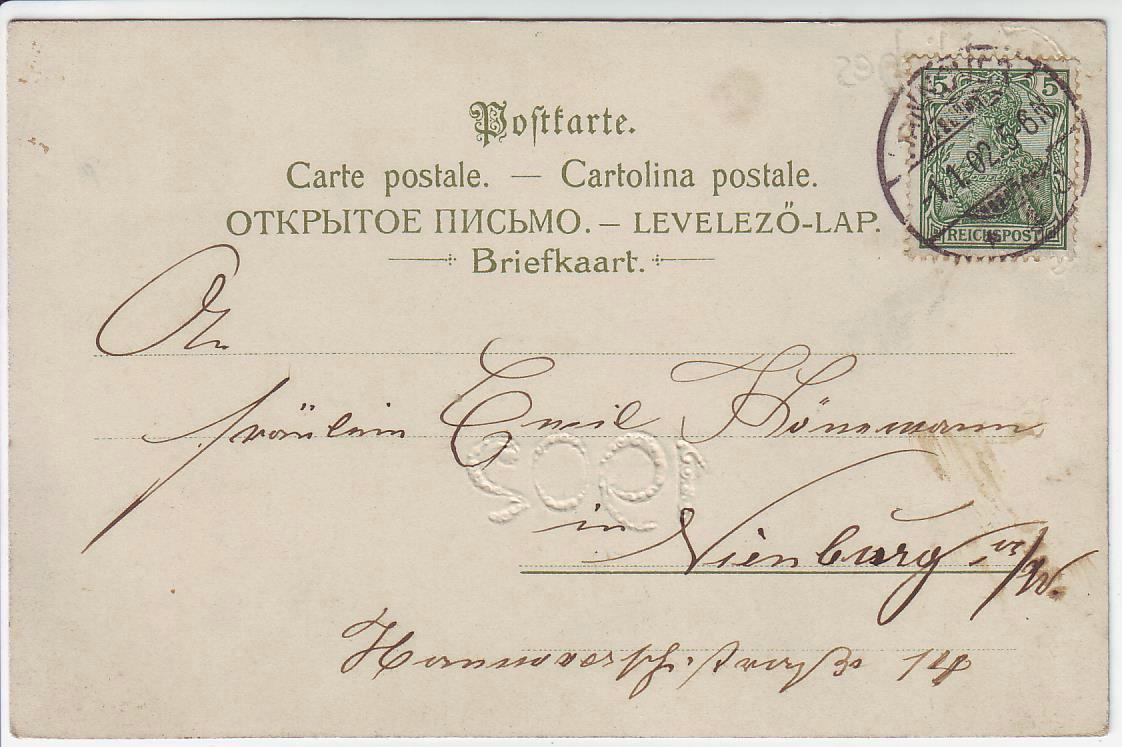 Postkarte.
Carte postale. — Cartolina postale.
ОТКРЫТОЕ ПИСЬМО. – LEVELEZŐ-LAP.
Briefkaart.
5 5
1.1.02.5-6N
REICHSPOST
An
Fräulein Emil Hönemann
1902
in Nienburg a/W.
Hannoversch.straße 14